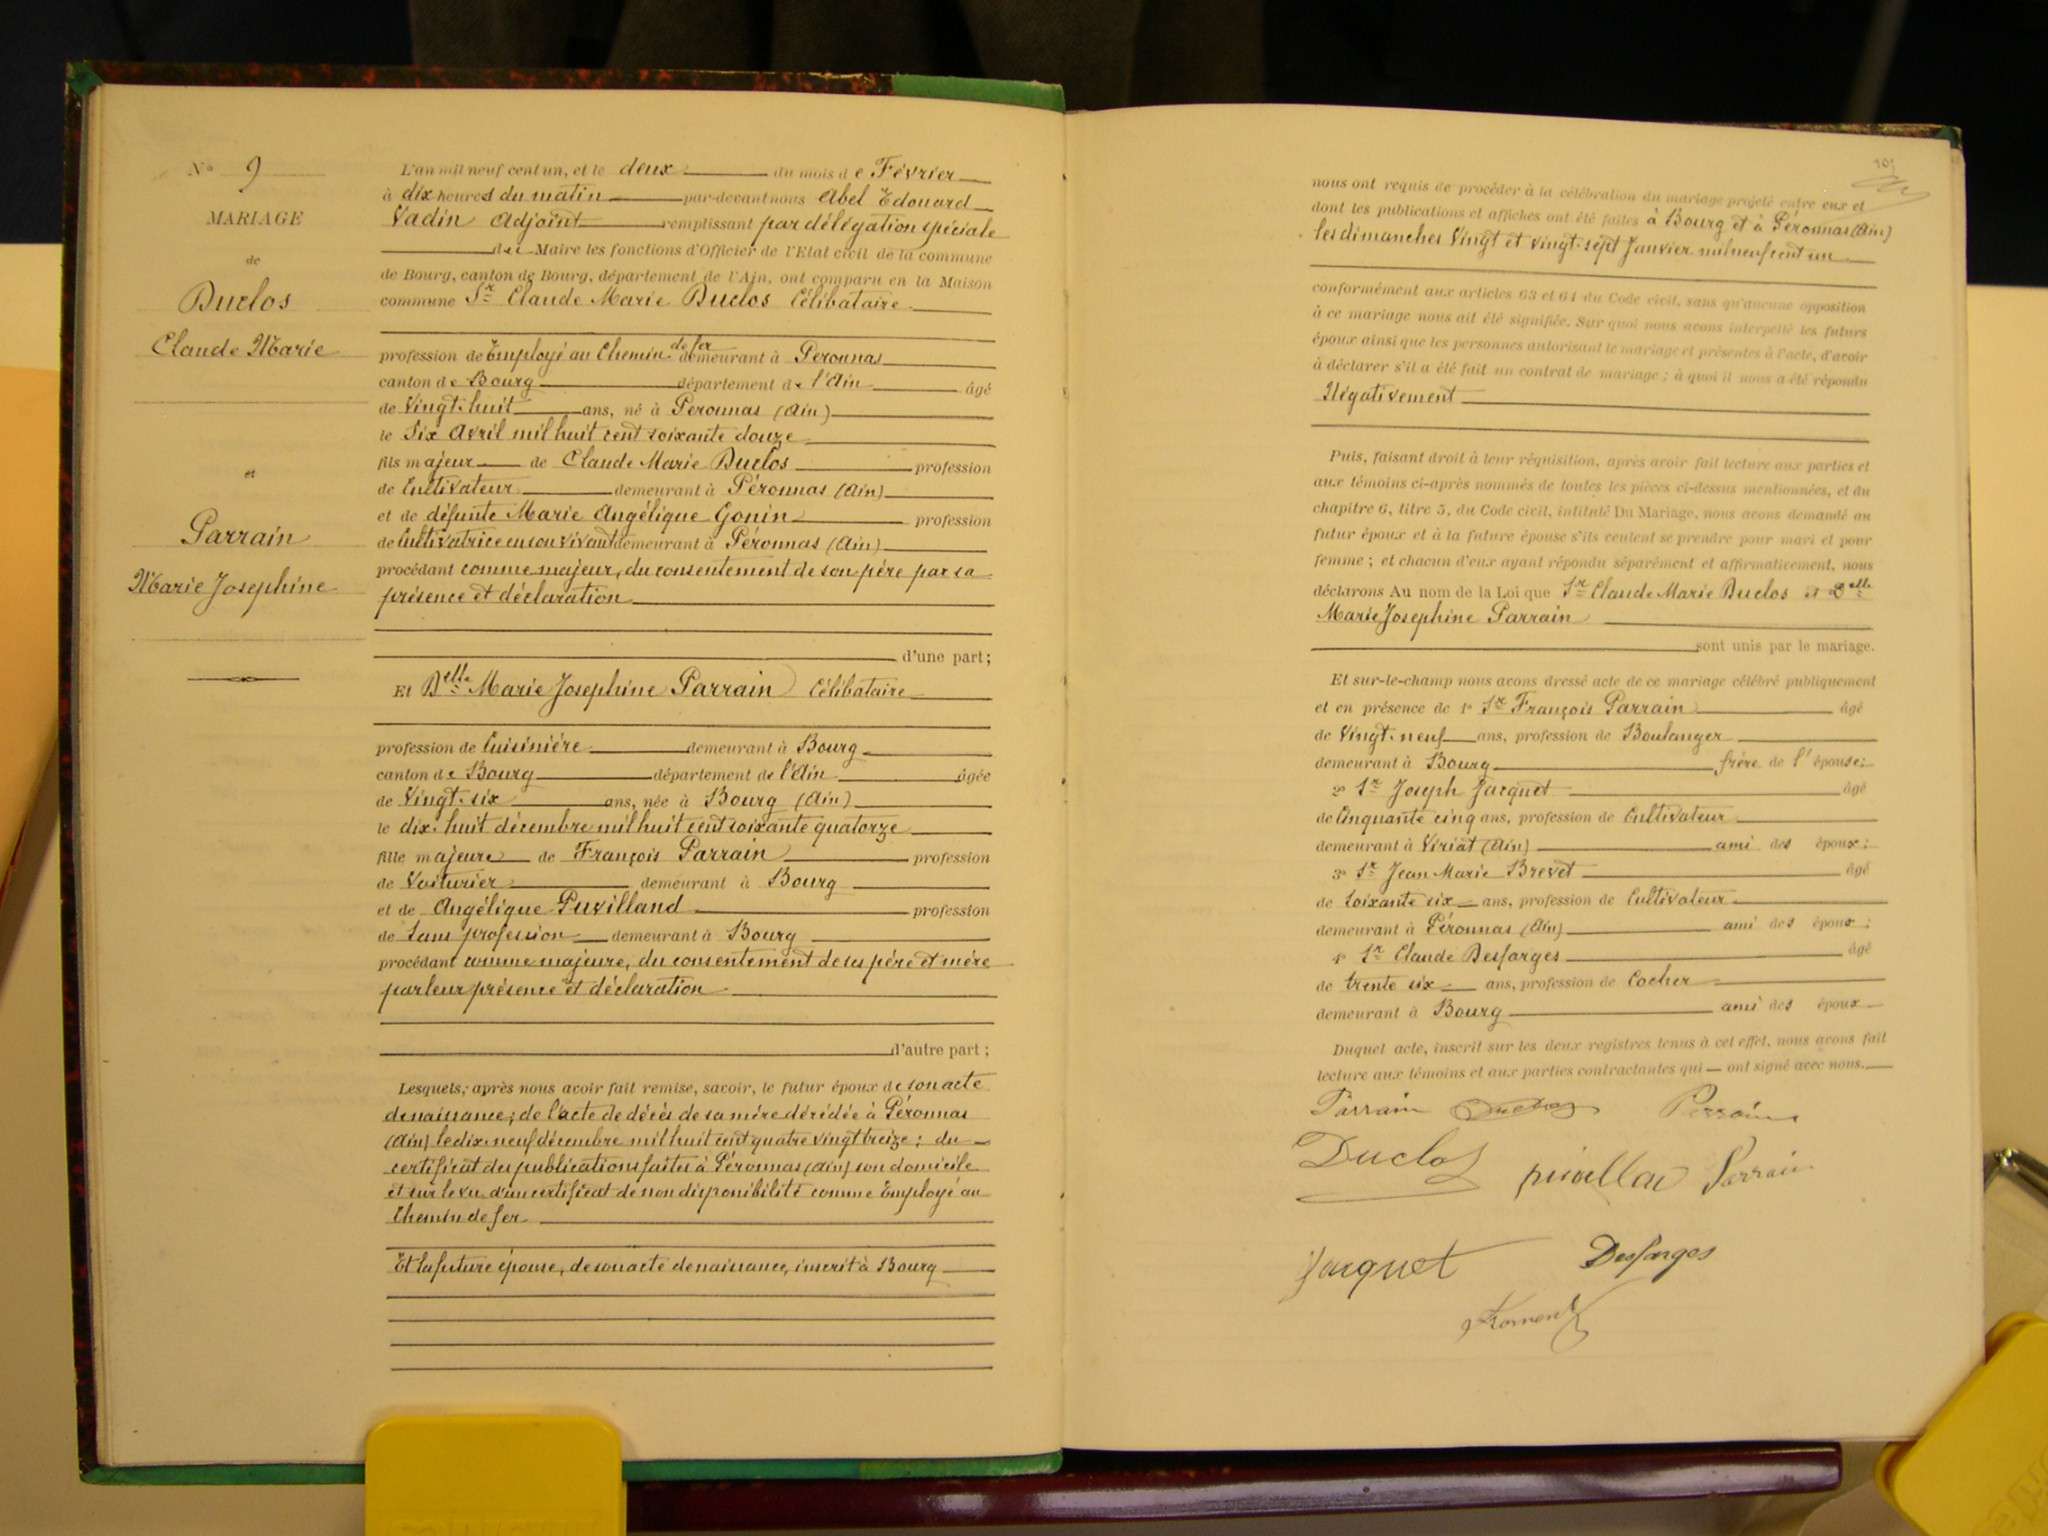 N° 9
MARIAGE
de
Duclos
Claude Marie
et
Parrain
Marie Josephine
L'an mil neuf cent un, et le deux du mois de Février
à dix heures du matin par-devant nous Abel Edouard
Vadin Adjoint remplissant par délégation spéciale
du Maire les fonctions d'Officier de l'Etat civil de la commune
de Bourg, canton de Bourg, département de l'Ain, ont comparu en la Maison
commune Sr Claude Marie Duclos Célibataire
profession de Employé au Chemin de fer demeurant à Peronnas
canton de Bourg département de l'Ain âgé
de Vingt-huit ans, né à Peronnas (Ain)
le Six Avril mil huit cent soixante douze
fils majeur de Claude Marie Duclos profession
de Cultivateur demeurant à Péronnas (Ain)
et de défunte Marie Angélique Gonin profession
de Cultivatrice en son vivant demeurant à Péronnas (Ain)
procédant comme majeur, du consentement de son père par sa
présence et déclaration
d'une part;
Et Delle Marie Josephine Parrain Célibataire
profession de Cuisinière demeurant à Bourg
canton de Bourg département de l'Ain âgée
de Vingt-six ans, née à Bourg (Ain)
le dix-huit décembre mil huit cent soixante quatorze
fille majeure de François Parrain profession
de Voiturier demeurant à Bourg
et de Angélique Puvilland profession
de Sans profession demeurant à Bourg
procédant comme majeure, du consentement de ses père et mère
par leur présence et déclaration
d'autre part;
Lesquels, après nous avoir fait remise, savoir, le futur époux de son acte
de naissance; de l'acte de décès de sa mère dérédée à Péronnas
(Ain) le dix-neuf décembre mil huit cent quatre vingt treize; du
certificat des publications faites à Péronnas (Ain) son domicile
et sur le vu d'un certificat de non disponibilité comme Employé au
Chemin de fer
Et la future épouse, de son acte de naissance, inscrit à Bourg
nous ont requis de procéder à la célébration du mariage projeté entre eux et
dont les publications et affiches ont été faites à Bourg et à Péronnas (Ain)
les dimanches Vingt et vingt-sept Janvier mil neuf cent un
conformément aux articles 63 et 64 du Code civil, sans qu'aucune opposition
à ce mariage nous ait été signifiée. Sur quoi nous avons interpellé les futurs
époux ainsi que les personnes autorisant le mariage et présentes à l'acte, d'avoir
à déclarer s'il a été fait un contrat de mariage; à quoi il nous a été répondu
Négativement
Puis, faisant droit à leur réquisition, après avoir fait lecture aux parties et
aux témoins ci-après nommés de toutes les pièces ci-dessus mentionnées, et du
chapitre 6, titre 5, du Code civil, intitulé Du Mariage, nous avons demandé au
futur époux et à la future épouse s'ils veulent se prendre pour mari et pour
femme; et chacun d'eux ayant répondu séparément et affirmativement, nous
déclarons Au nom de la Loi que Sr Claude Marie Duclos et Delle
Marie Josephine Parrain
sont unis par le mariage.
Et sur-le-champ nous avons dressé acte de ce mariage célébré publiquement
et en présence de 1° Sr François Parrain âgé
de Vingt-neuf ans, profession de Boulanger
demeurant à Bourg frère de l'épouse;
2° Sr Joseph Jacquet âgé
de Cinquante cinq ans, profession de Cultivateur
demeurant à Viriat (Ain) ami des époux;
3° Sr Jean Marie Brevet âgé
de soixante six ans, profession de Cultivateur
demeurant à Péronnas (Ain) ami des époux;
4° Sr Claude Desfarges âgé
de trente six ans, profession de Cocher
demeurant à Bourg ami des époux
Duquel acte, inscrit sur les deux registres tenus à cet effet, nous avons fait
lecture aux témoins et aux parties contractantes qui ont signé avec nous.
Parrain Duclos Parrain
Duclos Parrain
Jacquet Desfarges